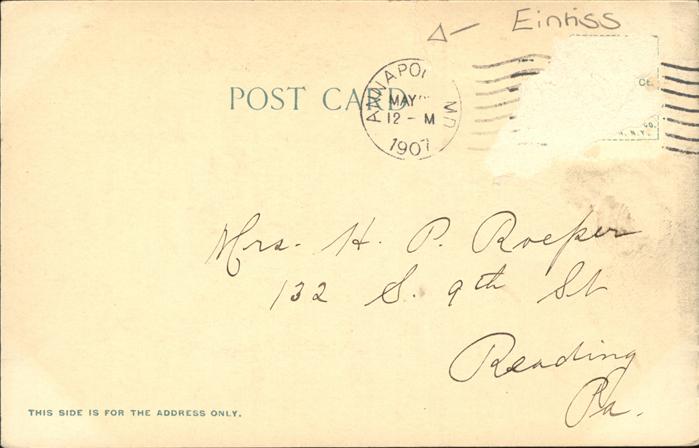 Einriss
POST CARD
ANNAPOL MD
MAY
12 - M
1907
CE.
CO.
N.Y.
Mrs. H. P. Roeper
132 S. 9th St
Reading
Pa.
THIS SIDE IS FOR THE ADDRESS ONLY.